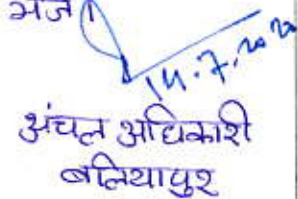 भेजें
14.7.2020
अंचल अधिकारी
बलियापुर